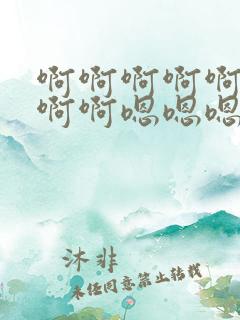 啊啊啊啊啊
啊啊嗯嗯嗯
沐非
未经同意禁止转载